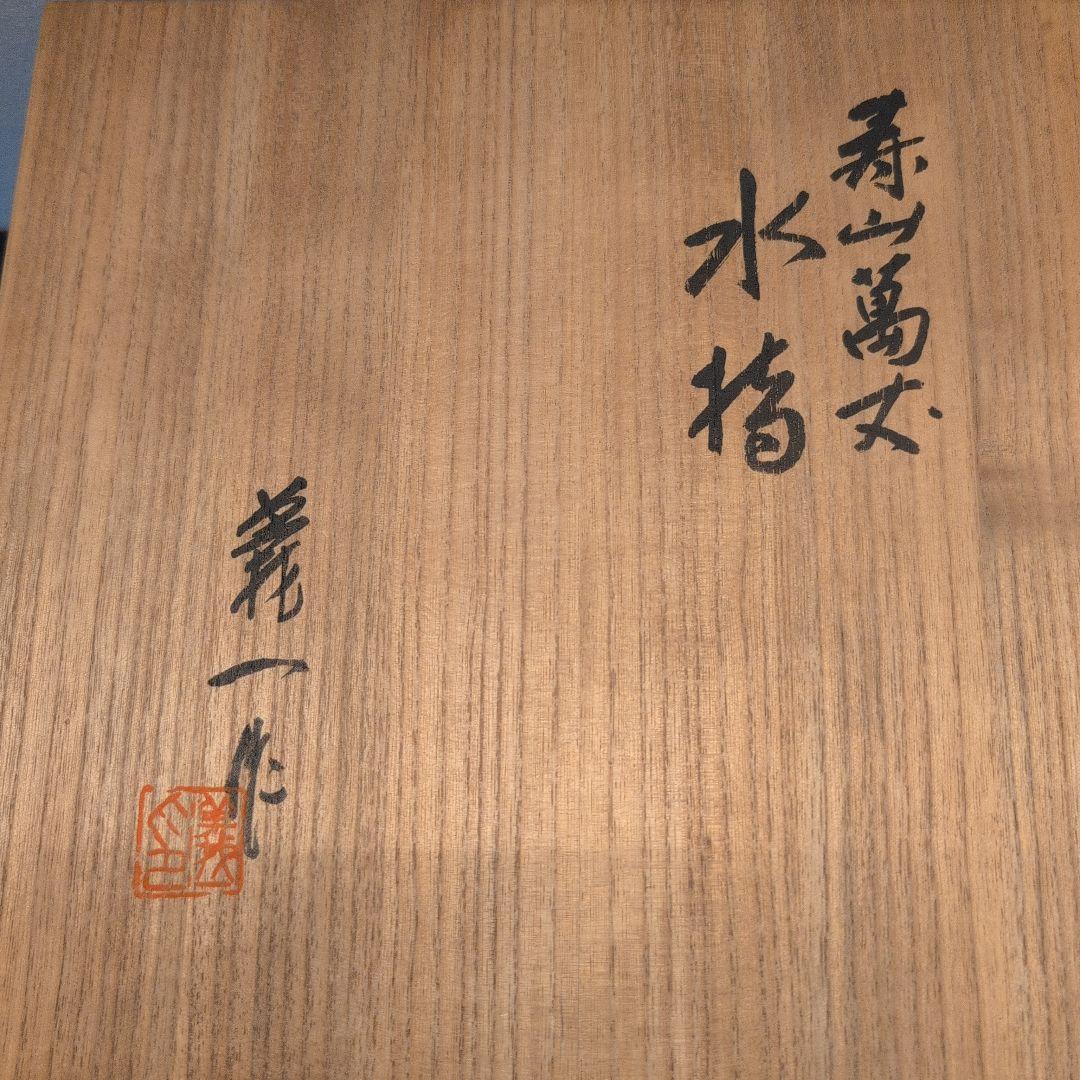 寿山萬丈
水指
義一作